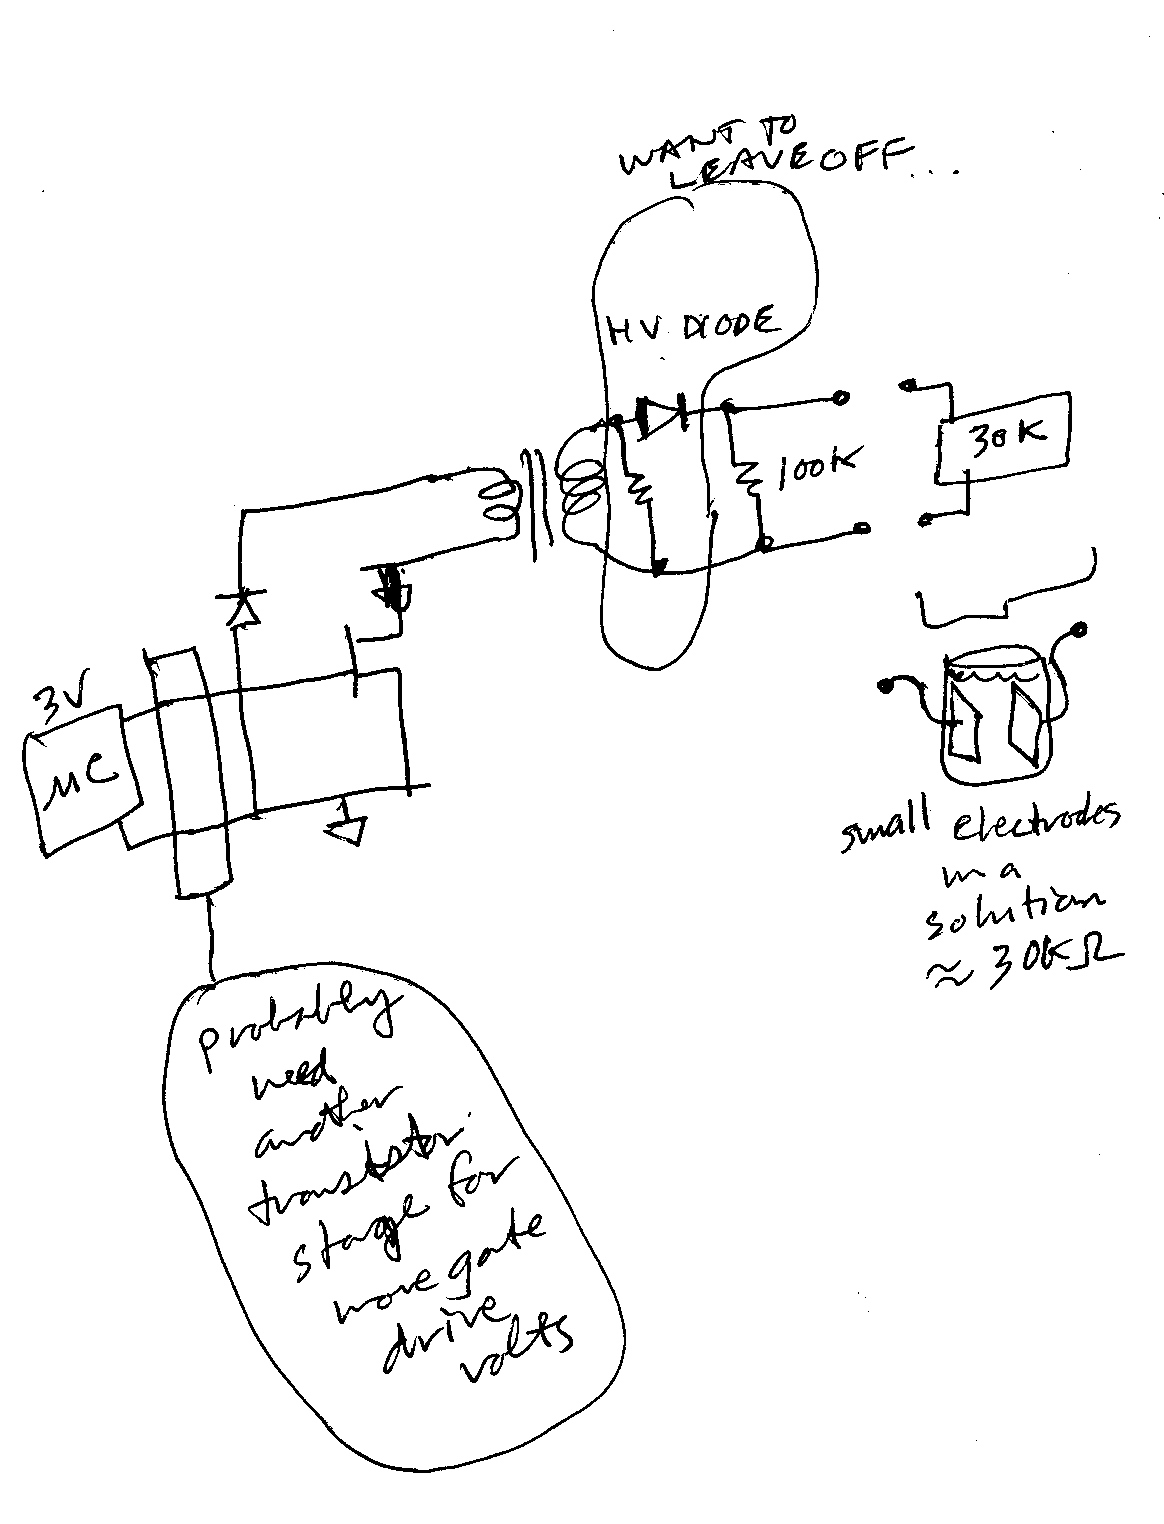 WANT TO
LEAVE OFF...
HV DIODE
30K
100K
3V
μC
small electrodes
in a
solution
≈ 30KΩ
probably
need
another
transistor
stage for
more gate
drive
volts